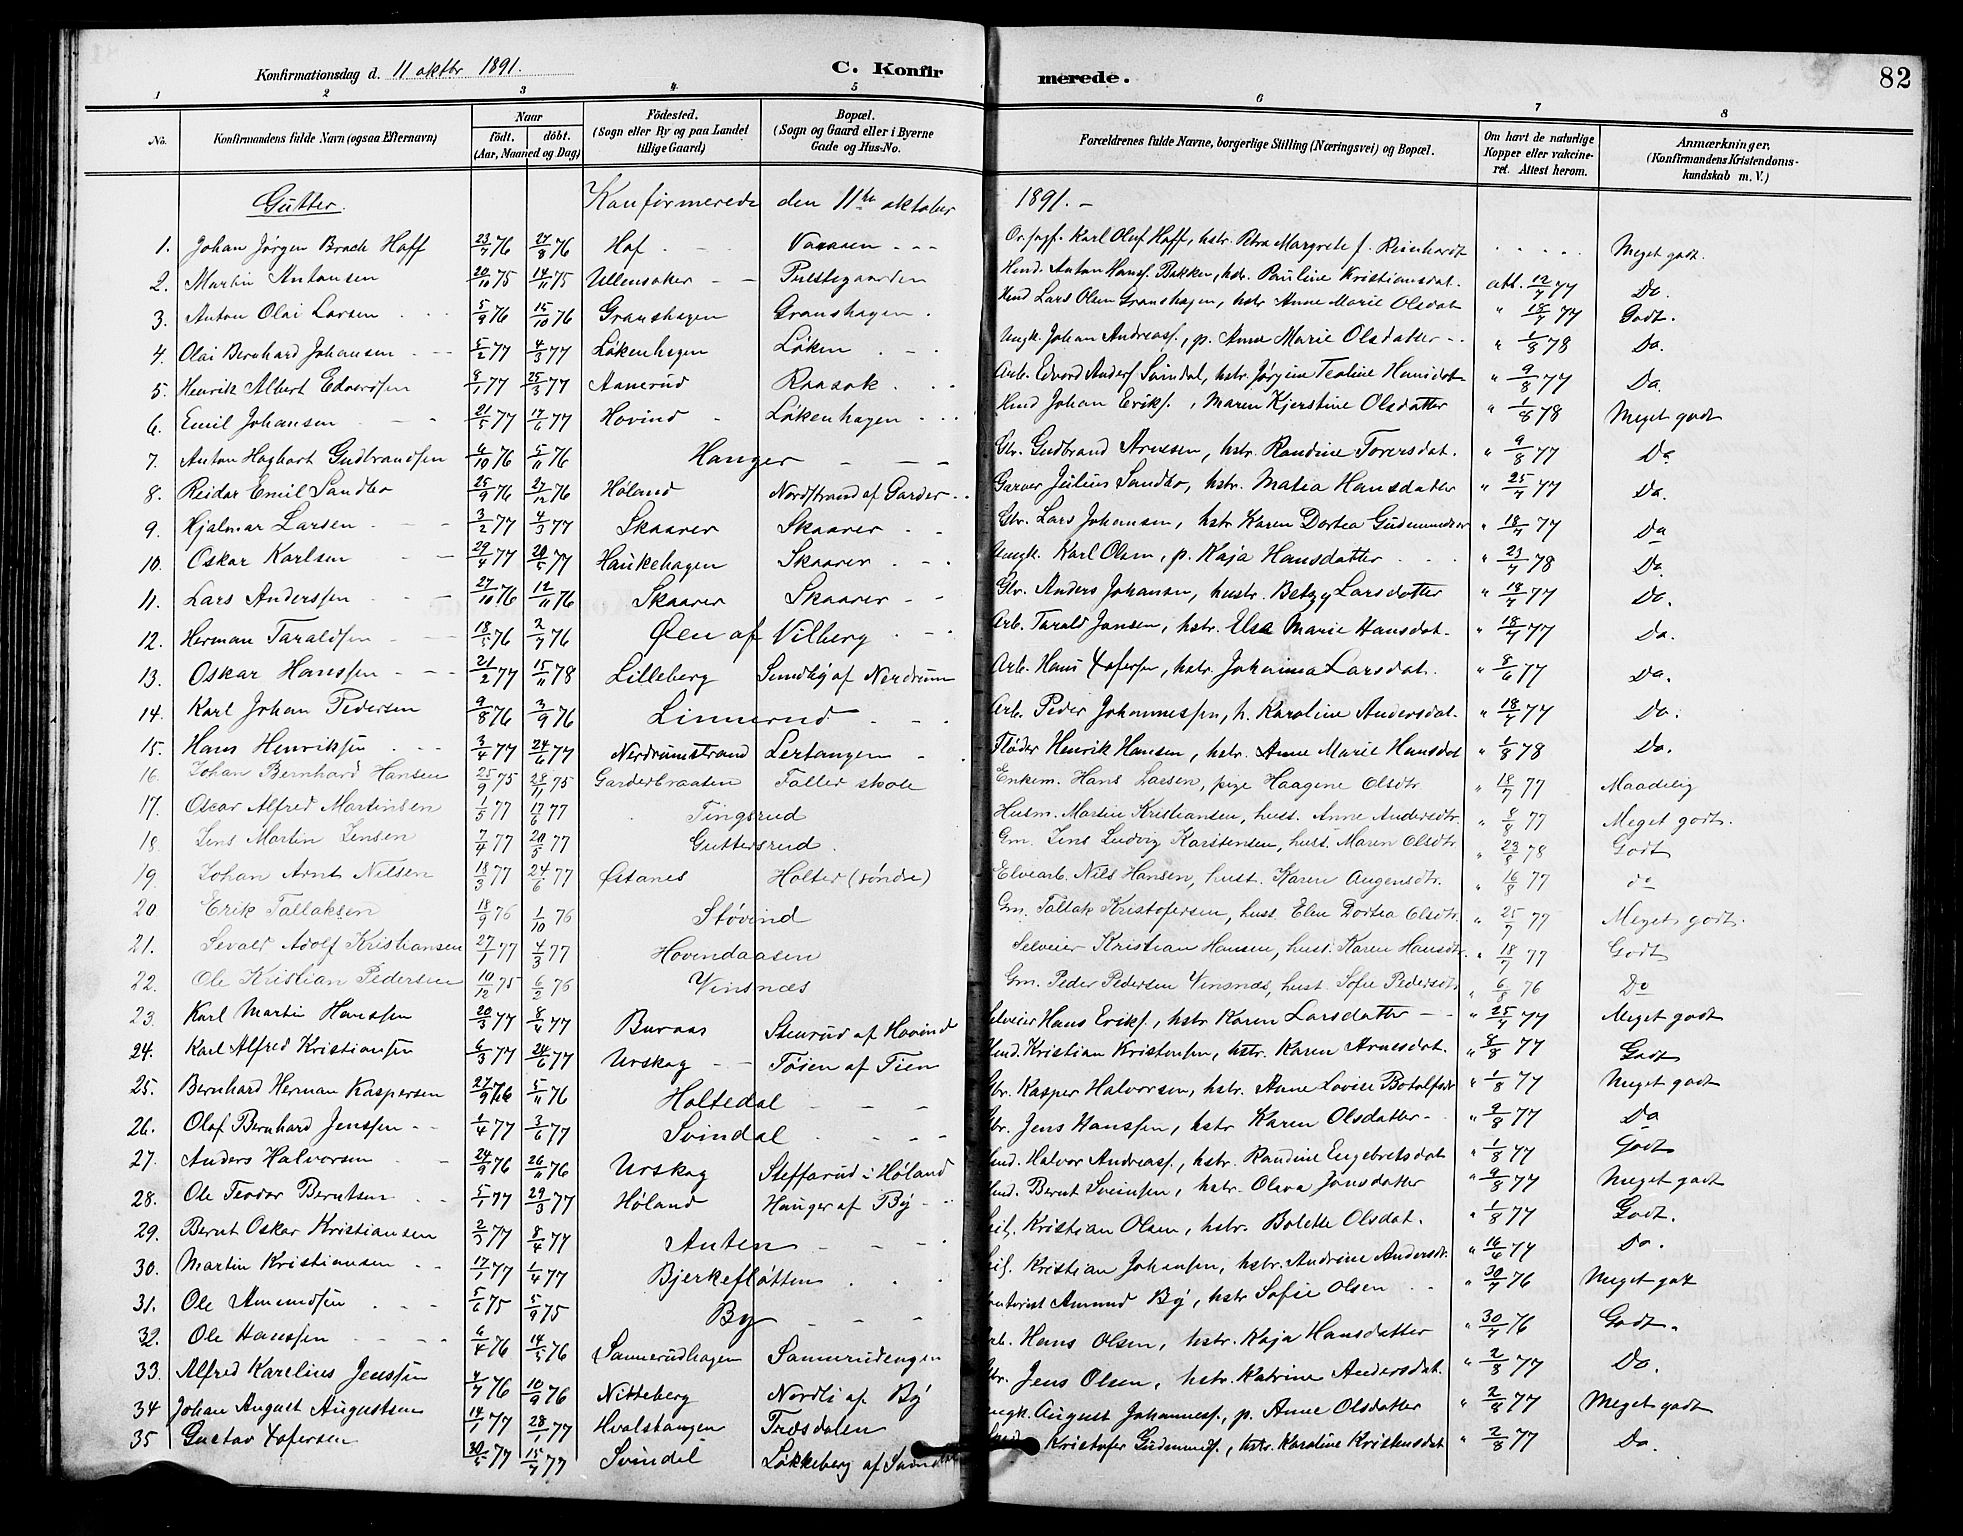 Konfirmationsdag d. 11 oktbr 1891. C. Konfirmerede. 82
1 2 3 4 5 6 7 8
No. Konfirmandens fulde Navn (ogsaa Efternavn) Naar født. døbt. (Aar, Maaned og Dag) Fødested. (Sogn eller By og paa Landet tillige Gaard) Bopæl. (Sogn og Gaard eller i Byerne Gade og Hus-No. Forældrenes fulde Navne, borgerlige Stilling (Næringsvei) og Bopæl. Om havt de naturlige Kopper eller vakcineret. Attest herom. Anmærkninger. (Konfirmandens Kristendomskundskab m. V.)
Gutter. Konfirmerede den 11te oktober 1891.-
1. Johan Jørgen Brach Hoff 23/7 76 27/8 76 Hof Karl Oluf Hoff, hstr. Petra Margrete f. Reinhardt Meget godt.
2. Martin Antonsen 20/10 75 14/11 75 Ullensaker Prestegaarden Anton Hansf. Bakken, hstr. Pauline Kristiansdat. att. 12/7 77 Do.
3. Anton Olai Larsen 5/9 76 15/10 76 Granshagen Granshagen Lars Olsen Granshagen, hstr Anne Marie Olsdat " 18/7 77 Godt.
4. Olai Bernhard Johansen 5/2 77 4/3 77 Løkenhagen Løken Ungk. Johan Andreasf., p. Anne Marie Olsdatter " 1/8 78 Do.
5. Henrik Albert Edvardsen 8/1 77 25/3 77 Aamerud Raasok Arb. Edvard Andersf Svindal, hstr. Jørgine Teoline Hansdat " 9/8 77 Do.
6. Emil Johansen 21/5 77 17/6 77 Hovind Løkenhagen Johan Eriks., Maren Kjerstine Olsdatter " 1/8 78 Meget godt
7. Anton Hagbart Gudbrandsen 6/10 76 5/11 76 Hanger Gbr. Gudbrand Arnesen, hstr. Randine Toversdat. " 9/8 77 Do
8. Reidar Emil Sandbo 25/9 76 27/12 76 Høland Nordstrand af Garder Garver Julius Sandbo, hstr. Matia Hansdatter " 25/7 77 Do.
9. Hjalmar Larsen 3/2 77 4/3 77 Skaarer Skaarer Gbr. Lars Johansen, hstr Karen Dortea Gudmundsdr " 18/7 77 Do
10. Oskar Karlsen 29/4 77 20/5 77 Haukehagen Skaarer Ungk. Karl Olsen, p. Kaja Hansdatter " 23/7 78 Do.
11. Lars Anderssen 27/10 76 12/11 76 Skaarer Skaarer Gbr. Anders Johansen, hustr. Betzy Larsdatter " 18/7 77 Do.
12. Herman Taraldsen 18/5 76 2/7 76 Øen af Vilberg Arb. Tarald Jansen, hstr. Else Marie Hansdat. " 18/7 77 Do.
13. Oskar Hanssen 21/2 77 15/11 78 Lilleberg Sundby af Nerdrum Arb. Hans Xofersen, hstr. Johanna Larsdat. " 8/6 77 Do.
14. Karl Johan Pedersen 9/8 76 3/9 76 Linnerud Arb. Peder Johannessen, h. Karoline Andersdat. " 18/7 77 Do.
15. Hans Henriksen 3/4 77 24/6 77 Nerdrumstrand Lertangen Fløder Henrik Hansen, hstr. Anne Marie Hansdat " 1/8 78 Do.
16. Johan Bernhard Hansen 25/9 75 28/11 75 Garderbraaten Faller skole Enkem. Hans Larsen, pige Haagene Olsdtr " 18/7 77 Maadelig
17. Oscar Alfred Martinsen 1/5 77 17/6 77 Tingsrud Husm. Martin Kristiansen, hust. Anne Andersdtr. " 8/8 77 Meget godt.
18 Jens Martin Jensen 7/4 77 20/5 77 Guttersrud Gm. Jens Ludvig Karstensen, hust. Maren Olsdtr " 23/8 78 Godt
19. Johan Arnt Nilsen 18/3 77 24/6 77 Østanes Holter (søndre) Elvearb. Nils Hansen, hust. Karen Augensdtr. " 16/8 77 do
20 Erik Tallaksen 18/9 76 1/10 76 Støvind Gm. Tallak Kristofersen, hust. Elen Dortea Olsdtr. " 25/7 77 Meget godt.
21. Sevald Adolf Kristiansen 27/1 77 4/3 77 Hovindaasen Selveier Kristian Hansen, hust. Karen Hansdtr. " 18/7 77 Godt
22. Ole Kristian Pedersen 10/12 75 6/2 76 Vinsnæs Gm. Peder Pedersen Vinsnæs, hust. Sofie Pedersdtr " 6/8 76 Do
23. Karl Martin Hanssen 20/3 77 8/4 77 Buraas Stenrud af Hovind Selveier Hans Eriks., hstr Karen Larsdatter " 25/7 77 Meget godt
24. Karl Alfred Kristiansen 6/3 77 24/6 77 Urskog Tøien af Tien Kristian Kristensen, hstr. Karen Arnesdat. " 8/8 77 Godt
25. Bernhard Herman Kaspersen 27/9 76 5/11 76 Holtedal Gbr. Kasper Halvorsen, hstr. Anne Lovise Botolfsdr " 1/8 77 Meget godt
26. Olaf Bernhard Jenssen 1/4 77 3/6 77 Svindal Gbr. Jens Hanssen, hstr Karen Olsdatter " 9/8 77 Do
27. Anders Halvorsen 24/9 76 26/11 76 Urskog Steffarud i Høland Halvor Andreass., hstr. Randine Engebretsdat " 1/8 77 Godt
28. Ole Teodor Berntsen 5/1 77 29/3 77 Høland Hanger af By Bernt Sveinsen, hstr. Olava Jonsdatter " 9/8 77 Meget godt
29. Bernt Oskar Kristiansen 2/3 77 8/4 77 Anten Kristian Olsen, hstr. Bolette Olsdat. " 1/8 77 Godt.
30. Martin Kristiansen 17/1 77 1/4 77 Bjerkefløtten Kristian Johansen, hstr. Andrine Andersdr. " 16/6 77 Do.
31. Ole Amundsen 5/6 75 5/9 75 By Amund By, hstr Sofie Olsen " 30/7 76 Meget godt
32. Ole Hanssen 6/4 76 14/5 76 Sannerudhagen Sannerudengen Arb. Hans Olsen, hstr. Kaja Hansdatter " 30/7 76 Godt.
33. Alfred Karelius Jenssen 4/7 76 10/9 76 Nitteberg Nordli af By Gbr. Jens Olsen, hstr. Katrine Andersdat. " 2/8 77 Do.
34 Johan August Augustsen 14/1 77 28/1 77 Hvalstangen Træsdalen Ungk. August Johannesf., p. Anne Olsdatter " 2/8 77 Meget godt
35 Gustav Xofersen 30/5 77 15/7 77 Svindal Løkkeberg af Svindal Kristofer Gudmunds., hstr. Karoline Kristensdat " 2/8 77 Do.